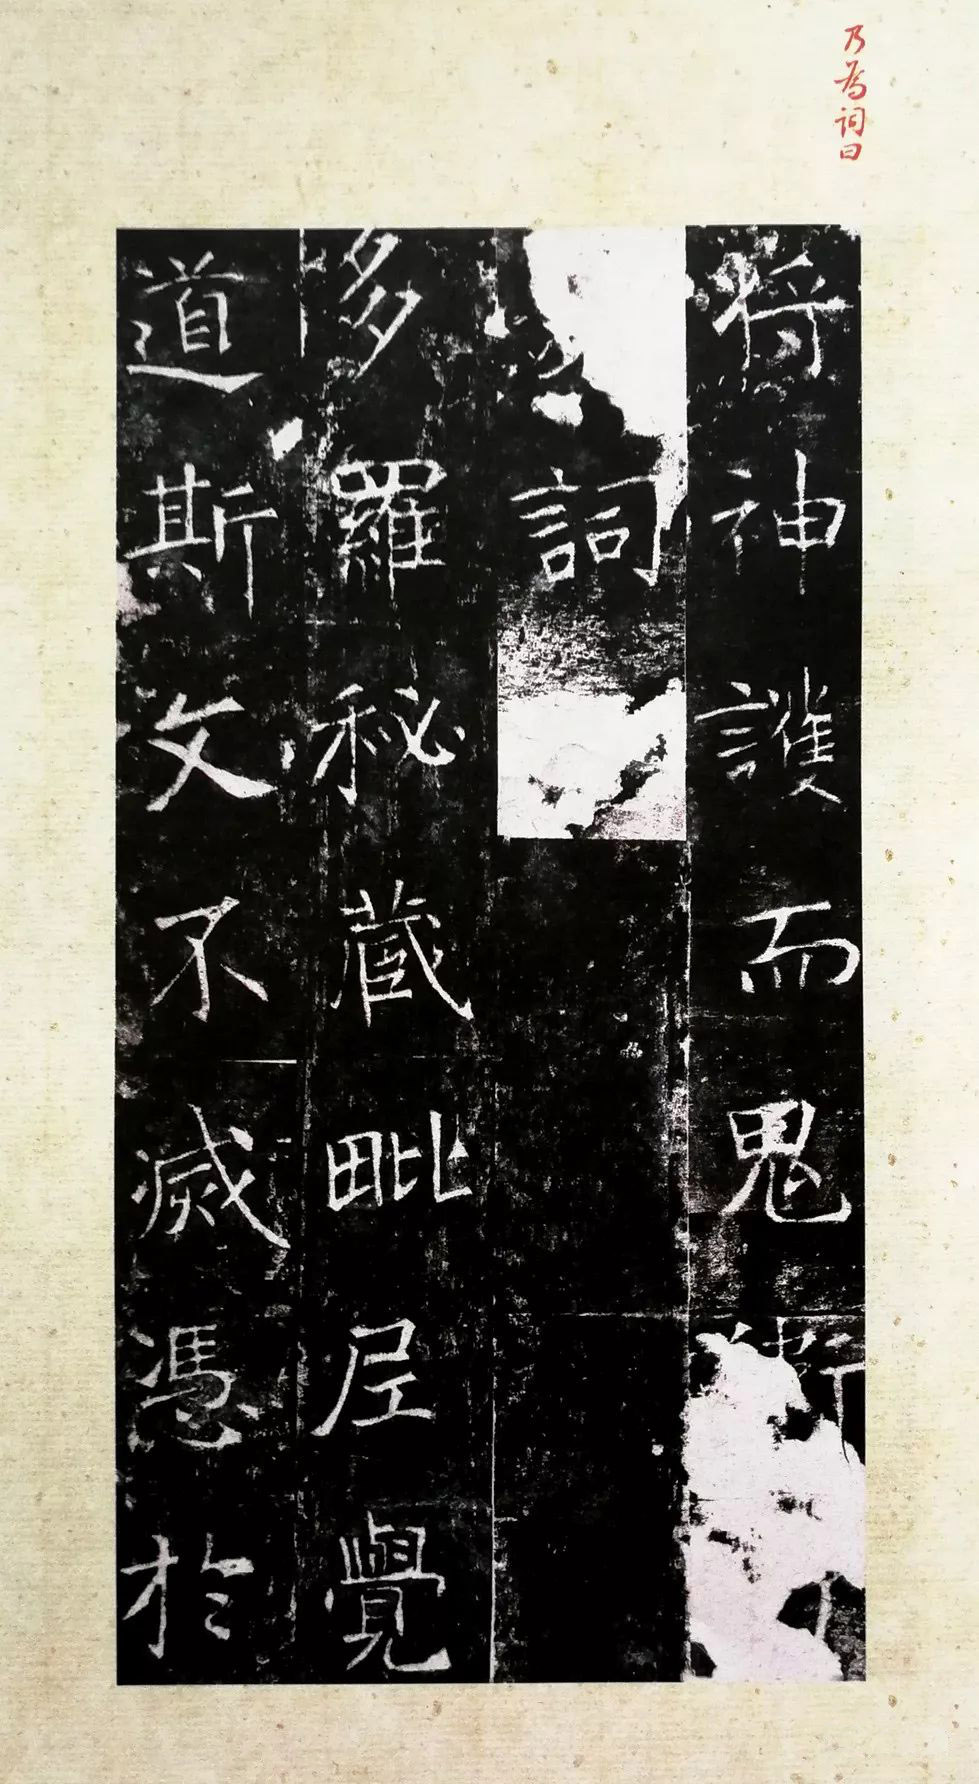 乃為詞曰
将神護而鬼衛
詞
多羅秘藏毗尼覺
道斯文不滅憑於